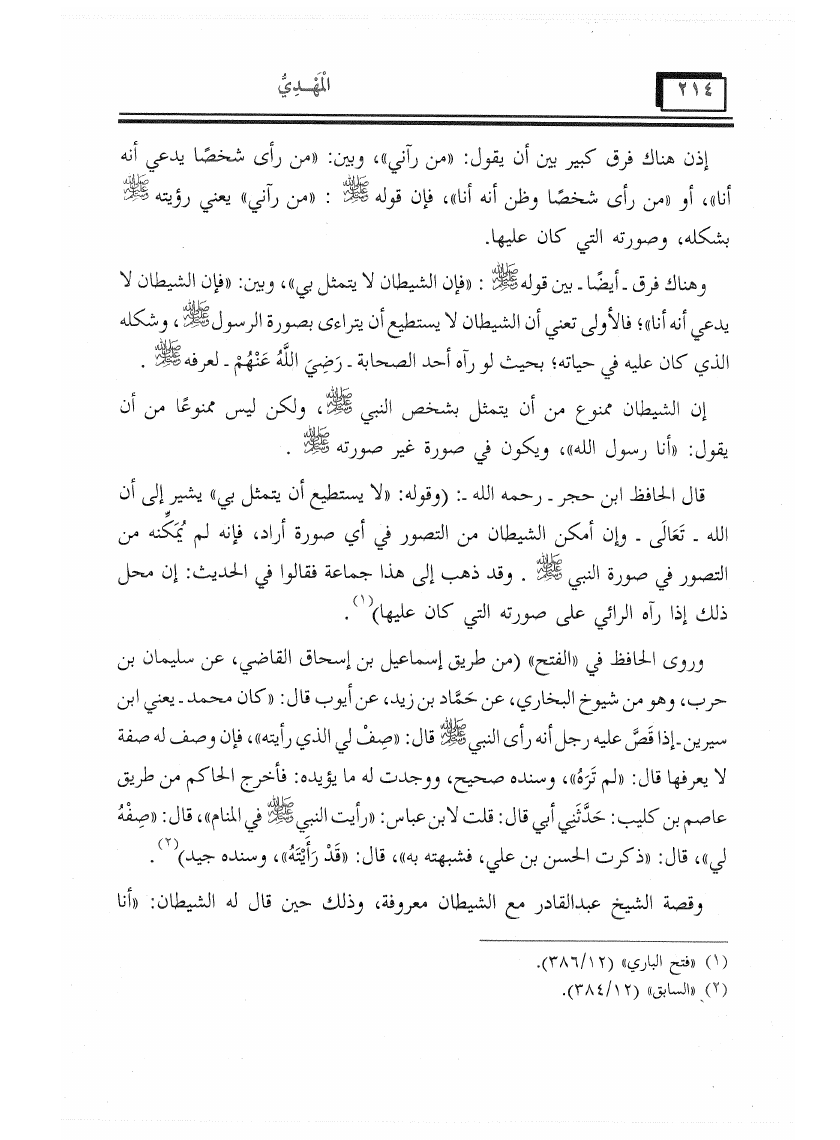 ٢١٤
الْمَهْـدِيُّ
إذن هناك فرق كبير بين أن يقول: «من رآني»، وبين: «من رأى شخصًا يدعي أنه
أنا»، أو «من رأى شخصًا وظن أنه أنا»، فإن قوله ﷺ : «من رآني» يعني رؤيته ﷺ
بشكله، وصورته التي كان عليها.
وهناك فرق ـ أيضًا ـ بين قوله ﷺ : «فإن الشيطان لا يتمثل بي»، وبين: «فإن الشيطان لا
يدعي أنه أنا»؛ فالأولى تعني أن الشيطان لا يستطيع أن يتراءى بصورة الرسول ﷺ، وشكله
الذي كان عليه في حياته؛ بحيث لو رآه أحد الصحابة ـ رَضِيَ اللَّهُ عَنْهُمْ ـ لعرفه ﷺ .
إن الشيطان ممنوع من أن يتمثل بشخص النبي ﷺ، ولكن ليس ممنوعًا من أن
يقول: «أنا رسول الله»، ويكون في صورة غير صورته ﷺ .
قال الحافظ ابن حجر ـ رحمه الله ـ: (وقوله: «لا يستطيع أن يتمثل بي» يشير إلى أن
الله ـ تَعَالَى ـ وإن أمكن الشيطان من التصور في أي صورة أراد، فإنه لم يُمَكِّنه من
التصور في صورة النبي ﷺ . وقد ذهب إلى هذا جماعة فقالوا في الحديث: إن محل
ذلك إذا رآه الرائي على صورته التي كان عليها)(١).
وروى الحافظ في «الفتح» (من طريق إسماعيل بن إسحاق القاضي، عن سليمان بن
حرب، وهو من شيوخ البخاري، عن حَمَّاد بن زيد، عن أيوب قال: «كان محمد ـ يعني ابن
سيرين ـ إذا قَصَّ عليه رجل أنه رأى النبي ﷺ قال: «صِفْ لي الذي رأيته»، فإن وصف له صفة
لا يعرفها قال: «لم تَرَهُ»، وسنده صحيح، ووجدت له ما يؤيده: فأخرج الحاكم من طريق
عاصم بن كليب: حَدَّثَنِي أبي قال: قلت لابن عباس: «رأيت النبي ﷺ في المنام»، قال: «صِفْهُ
لي»، قال: «ذكرت الحسن بن علي، فشبهته به»، قال: «قَدْ رَأَيْتَهُ»، وسنده جيد)(٢).
وقصة الشيخ عبدالقادر مع الشيطان معروفة، وذلك حين قال له الشيطان: «أنا
(١) «فتح الباري» (٣٨٦/١٢).
(٢) «السابق» (٣٨٤/١٢).